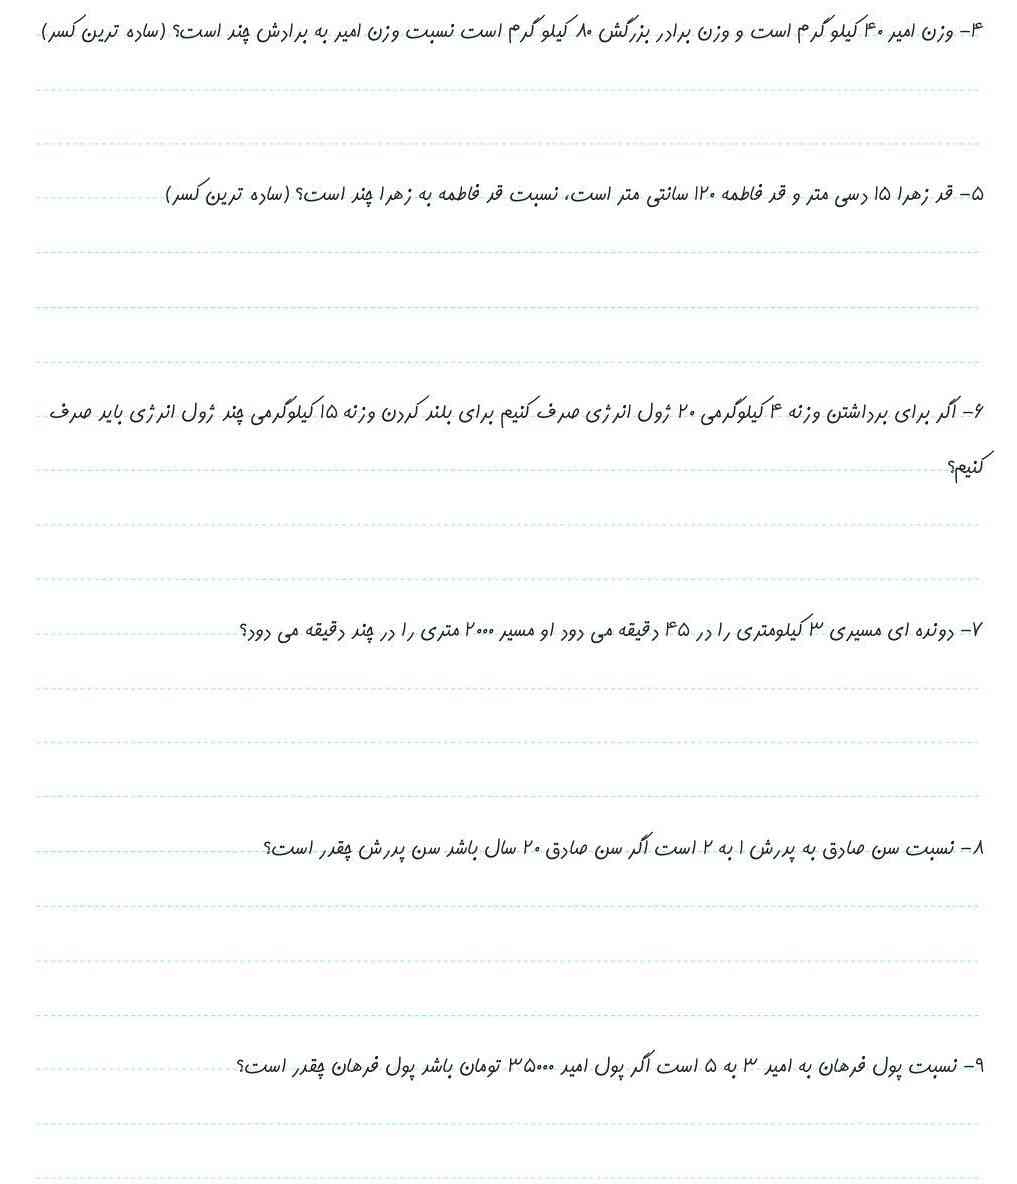 ۴- وزن امیر ۴۰ کیلو گرم است و وزن برادر بزرگش ۸۰ کیلو گرم است نسبت وزن امیر به برادش چند است؟ (ساده ترین کسر)
۵- قد زهرا ۱۵ دسی متر و قد فاطمه ۱۲۰ سانتی متر است، نسبت قد فاطمه به زهرا چند است؟ (ساده ترین کسر)
۶- اگر برای برداشتن وزنه ۴ کیلوگرمی ۲۰ ژول انرژی صرف کنیم برای بلند کردن وزنه ۱۵ کیلوگرمی چند ژول انرژی باید صرف
کنیم؟
۷- دونده ای مسیری ۳ کیلومتری را در ۴۵ دقیقه می دود او مسیر ۲۰۰۰ متری را در چند دقیقه می دود؟
۸- نسبت سن صادق به پدرش ۱ به ۲ است اگر سن صادق ۲۰ سال باشد سن پدرش چقدر است؟
۹- نسبت پول فرهان به امیر ۳ به ۵ است اگر پول امیر ۳۵۰۰۰ تومان باشد پول فرهان چقدر است؟